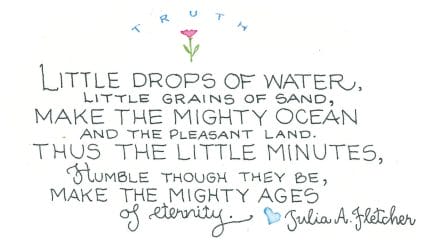 TRUTH
LITTLE DROPS OF WATER,
LITTLE GRAINS OF SAND,
MAKE THE MIGHTY OCEAN
AND THE PLEASANT LAND.
THUS THE LITTLE MINUTES,
HUMBLE THOUGH THEY BE,
MAKE THE MIGHTY AGES
of eternity.
Julia A. Fletcher